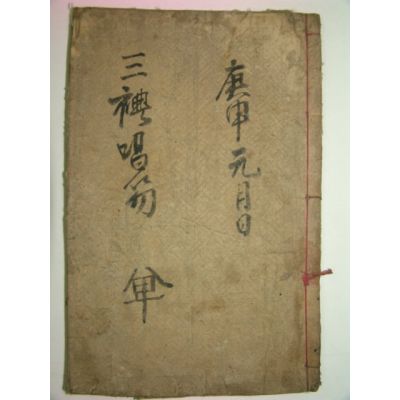 庚申元月日
三禮唱笏 单